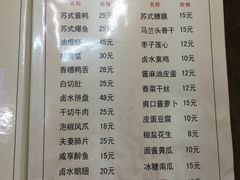 名称 价格 名称 价格
苏式酱鸭 25元 苏式糖藕 15元
苏式爆鱼 25元 马兰头香干 15元
油爆虾 元 枣子莲心 12元
30元 卤水素鸡 10元
香糟鸭舌 30元 酱麻油皮蛋 12元
白切肚 25元 香菜干丝 12元
卤水拼盘 48元 爽口酱萝卜 10元
干切牛肉 25元 皮蛋豆腐 10元
泡椒凤爪 18元 椒盐花生 8元
夫妻肺片 25元 面酱黄瓜 10元
咸亨醉鱼 15元 冰糖南瓜 15元
卤水鹅翅 20元